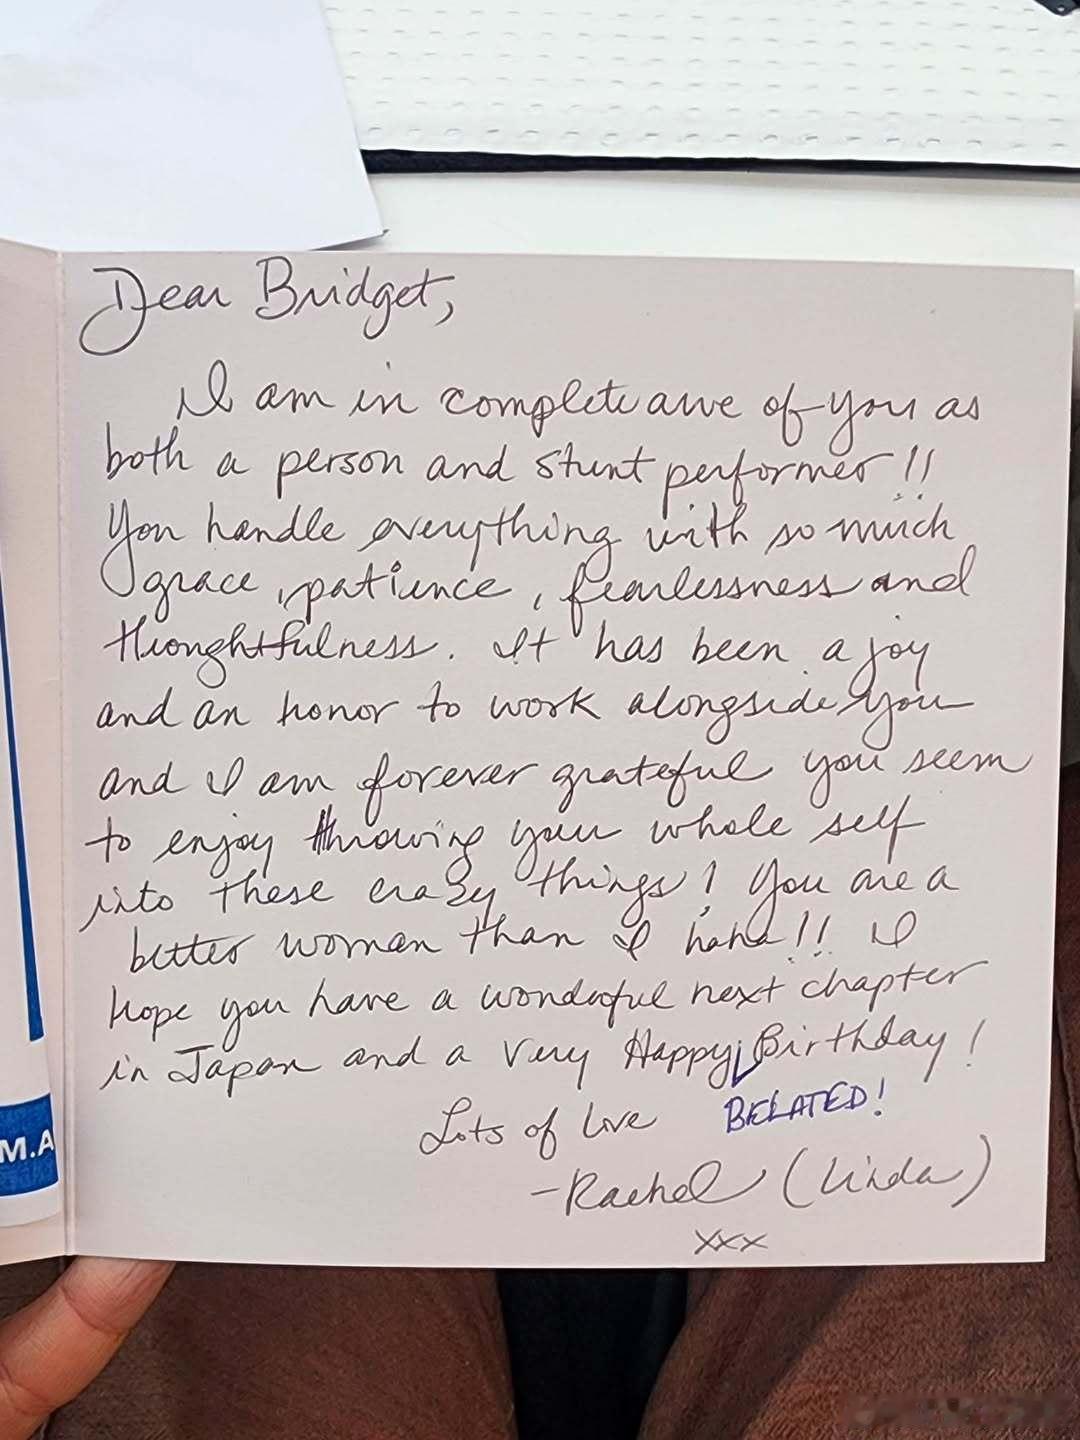 Dear Bridget,
I am in complete awe of you as
both a person and stunt performer!!
You handle everything with so much
grace, patience, fearlessness and
thoughtfulness. It has been a joy
and an honor to work alongside you
and I am forever grateful you seem
to enjoy throwing your whole self
into these crazy things! You are a
better woman than I haha!! I
hope you have a wonderful next chapter
in Japan and a very Happy Birthday!
BELATED!
Lots of love
-Rachel (Linda)
xxx
M.A